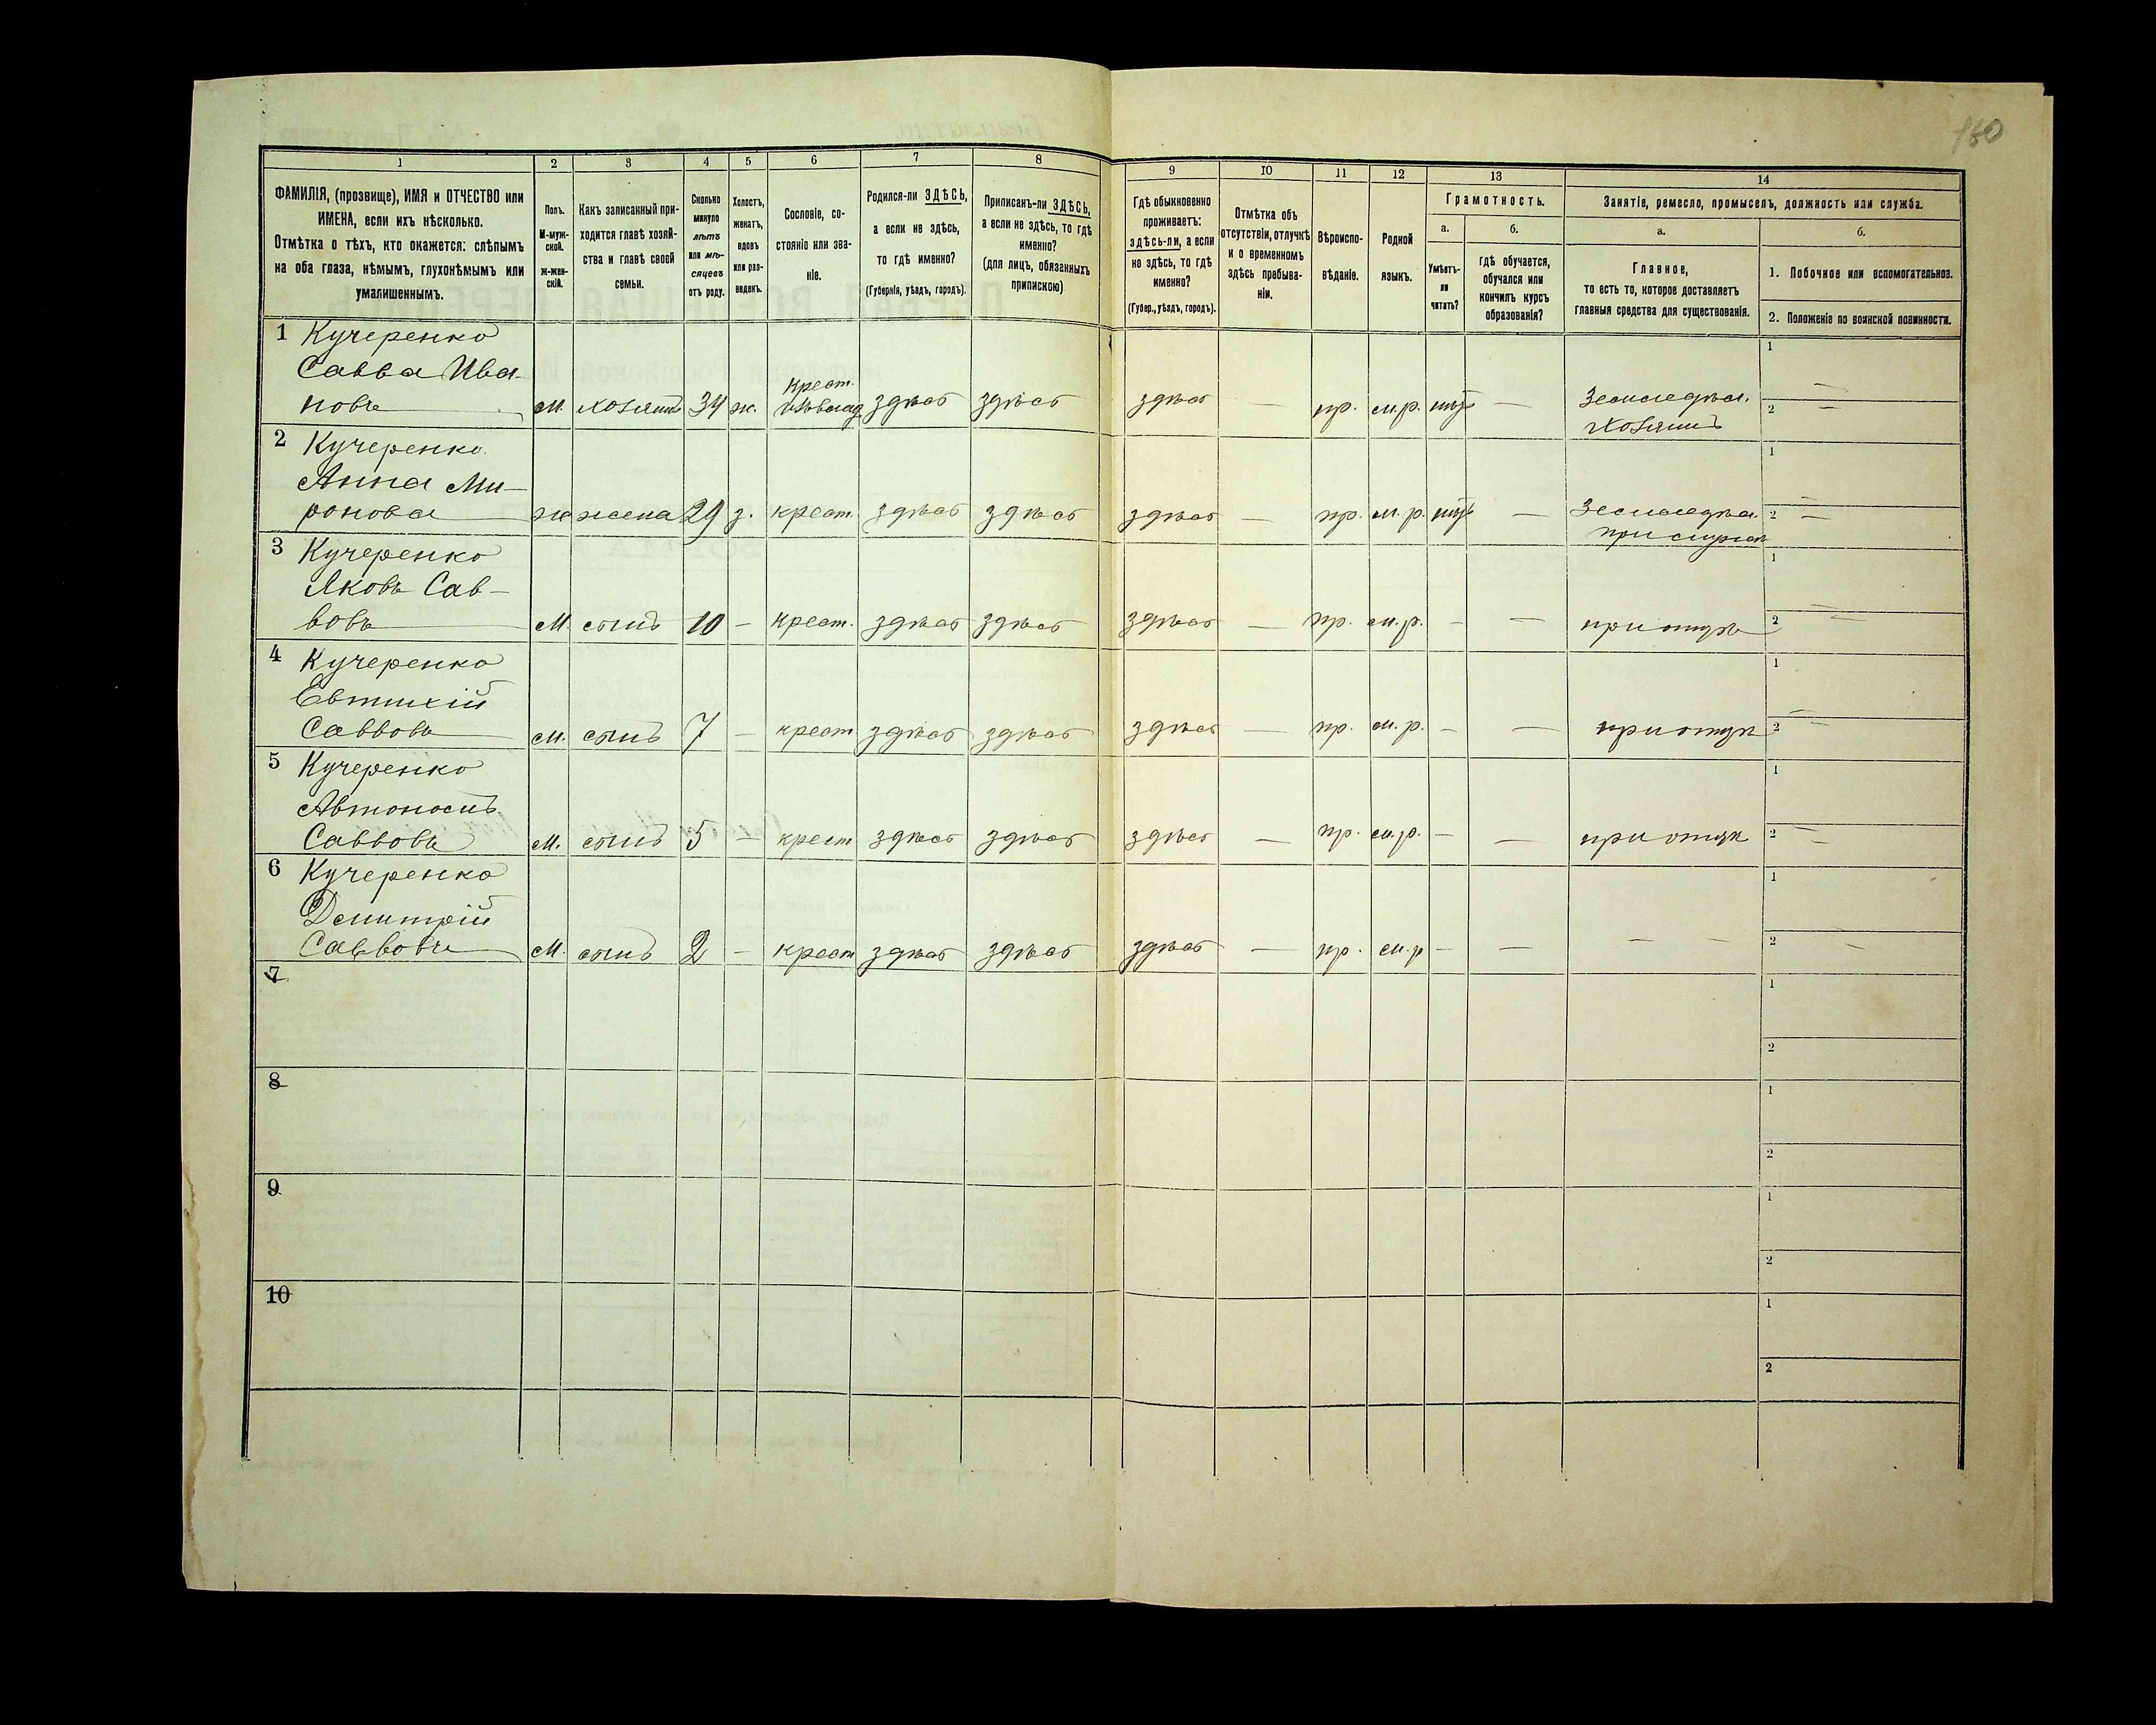 160
1 2 3 4 5 6 7 8 9 10 11 12 13 14
ФАМИЛІЯ, (прозвище), ИМЯ и ОТЧЕСТВО или
ИМЕНА, если ихъ нѣсколько.
Отмѣтка о тѣхъ, кто окажется: слѣпымъ
на оба глаза, нѣмымъ, глухонѣмымъ или
умалишеннымъ.
Полъ.
М-муж-
ской.
ж-жен-
скій.
Какъ записанный при-
ходится главѣ хозяй-
ства и главѣ своей
семьи.
Сколько
минуло
лѣтъ
или мѣ-
сяцевъ
отъ роду.
Холостъ,
женатъ,
вдовъ
или раз-
веденъ.
Сословіе, со-
стояніе или зва-
ніе.
Родился-ли ЗДѢСЬ,
а если не здѣсь,
то гдѣ именно?
(Губернія, уѣздъ, городъ).
Приписанъ-ли ЗДѢСЬ,
а если не здѣсь, то гдѣ
именно?
(для лицъ, обязанныхъ
припискою)
Гдѣ обыкновенно
проживаетъ:
здѣсь-ли, а если
не здѣсь, то гдѣ
именно?
(Губер., уѣздъ, городъ).
Отмѣтка объ
отсутствіи, отлучкѣ
и о временномъ
здѣсь пребыва-
ніи.
Вѣроиспо-
вѣданіе.
Родной
языкъ.
Грамотность.
а.
Умѣетъ-
ли
читать?
б.
гдѣ обучается,
обучался или
кончилъ курсъ
образованія?
Занятіе, ремесло, промыселъ, должность или служба.
а.
Главное,
то есть то, которое доставляетъ
главныя средства для существованія.
б.
1. Побочное или вспомогательное.
2. Положеніе по воинской повинности.
1 Кучеренко
Савва Ива-
новъ м. хозяинъ 34 ж. крест. здѣсь здѣсь здѣсь — пр. м.р. — Земледѣл.
хозяинъ
1 —
2 —
2 Кучеренко
Анна Ми-
ронова ж жена 29 з. крест. здѣсь здѣсь здѣсь — пр. м.р. — Земледѣл.
при мужѣ
1 —
2 —
3 Кучеренко
Яковъ Сав-
вовъ М сынъ 10 — крест. здѣсь здѣсь здѣсь — пр. м.р. — — при отцѣ
1 —
2 —
4 Кучеренко
Евтихій
Саввовъ м. сынъ 7 — крест здѣсь здѣсь здѣсь — пр. м.р. — — при отцѣ
1 —
2 —
5 Кучеренко
Автономъ
Саввовъ м. сынъ 5 — крест здѣсь здѣсь здѣсь — пр. м.р. — — при отцѣ
1 —
2 —
6 Кучеренко
Димитрій
Саввовъ м. сынъ 2 — крест здѣсь здѣсь здѣсь — пр. м.р — — — —
1
2 —
7
1
2
8
1
2
9
1
2
10
1
2